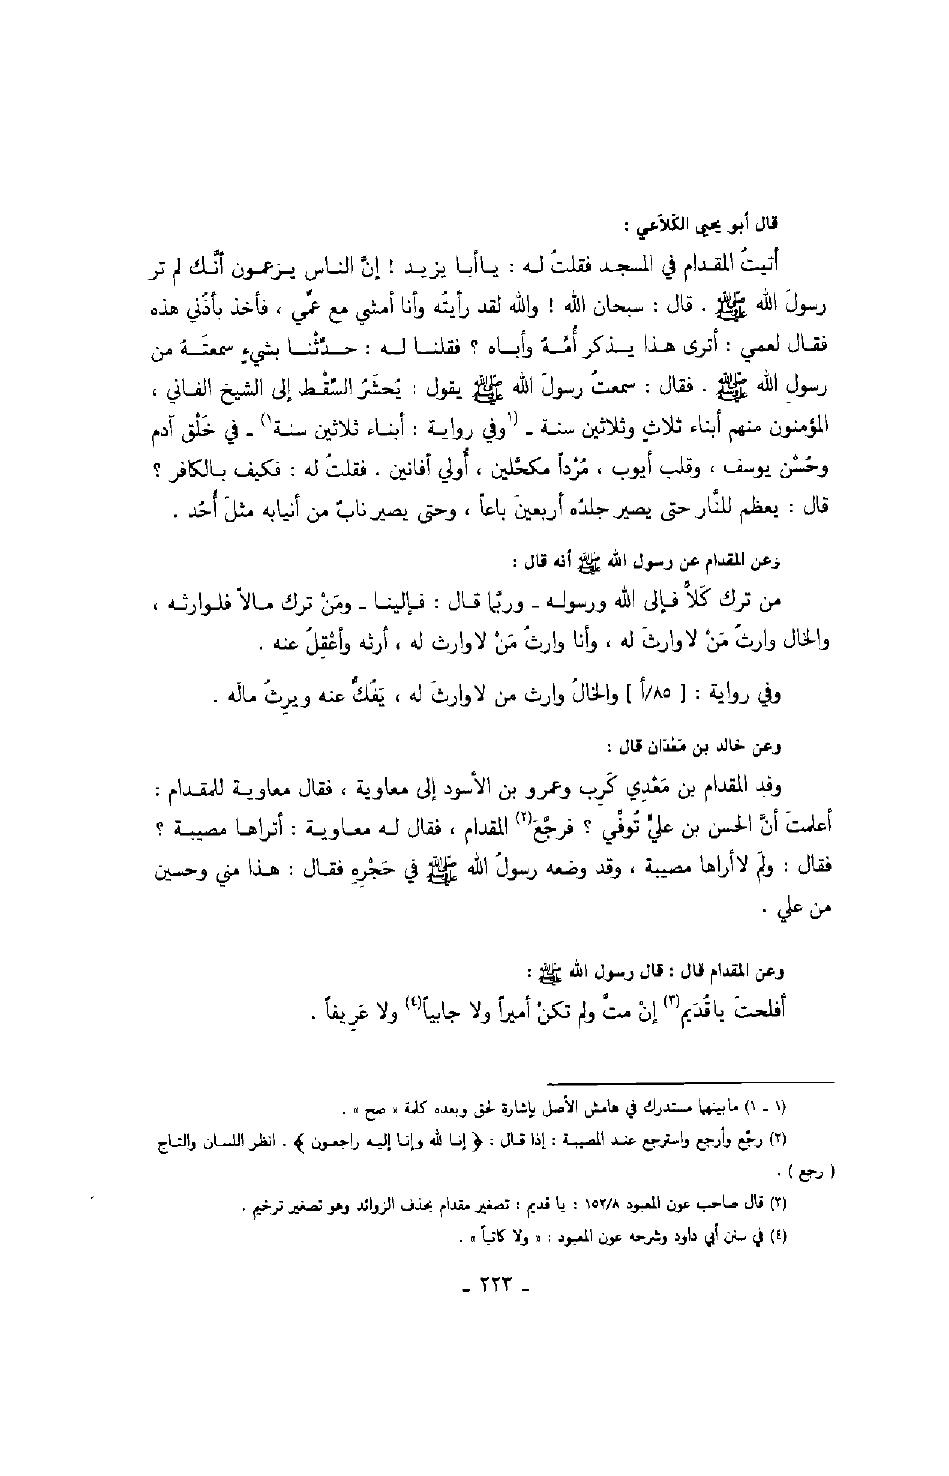 قال أبو يحيى الكَلاَعي :
أتيتُ المقدام في المسجد فقلتُ له : ياأبا يزيد ! إنَّ الناس يزعمون أنَّك لم تر
رسولَ الله ﷺ . قال : سبحان الله ! والله لقد رأيتُه وأنا أمشي مع عمِّي ، فأخذ بأذُني هذه
فقال لعمي : أترى هذا يذكر أُمَّه وأباه ؟ فقلنا له : حدِّثْنا بشيءٍ سمعتَه من
رسولِ الله ﷺ . فقال : سمعتُ رسولَ الله ﷺ يقول : يُحشَرُ السِّقْط إلى الشيخ الفاني ،
المؤمنون منهم أبناء ثلاثٍ وثلاثين سنة ـ (١وفي رواية : أبناء ثلاثين سنة١) ـ في خَلْق آدم
وحُسْن يوسف ، وقلب أيوب ، مُرْداً مكحَّلين ، أُولي أفانين . فقلتُ له : فكيف بالكافر ؟
قال : يعظم للنَّار حتى يصير جلدُه أربعينَ باعاً ، وحتى يصير نابٌ من أنيابه مثلَ أُحُد .
وعن المقدام عن رسول الله ﷺ أنه قال :
من ترك كَلاًّ فإلى الله ورسوله ـ وربَّما قال : فإلينا ـ ومَنْ ترك مالاً فلوارثه ،
والخال وارثُ مَنْ لاوارثَ له ، وأنا وارثُ مَنْ لاوارث له ، أرثه وأعْقِلُ عنه .
وفي رواية : [ ٨٥/أ ] والخالُ وارث من لاوارثَ له ، يَفُكُّ عنه ويرِثُ مالَه .
وعن خالد بن مَعْدَان قال :
وفد المقدام بن مَعْدِي كَرِب وعمرو بن الأسود إلى معاوية ، فقال معاوية للمقدام :
أعلمتَ أنَّ الحسن بن عليٍّ تُوفِّي ؟ فرجَّعَ(٢) المقدام ، فقال له معاوية : أتراها مصيبة ؟
فقال : ولِمَ لاأراها مصيبة ، وقد وضعه رسولُ الله ﷺ في حَجْرِهِ فقال : هذا مني وحسين
من علي .
وعن المقدام قال : قال رسول الله ﷺ :
أفلحتَ ياقُدَيم(٣) إنْ متَّ ولم تكنْ أميراً ولا جابياً(٤) ولا عَرِيفاً .
(١ ـ ١) مابينها مستدرك في هامش الأصل بإشارة لحق وبعده كلمة « صح » .
(٢) رجَّع وأرجع واسترجع عند المصيبة : إذا قال : ﴿ إنا لله وإنا إليه راجعون ﴾ . انظر اللسان والتاج
( رجع ) .
(٣) قال صاحب عون المعبود ١٥٢/٨ : يا قديم : تصغير مقدام بحذف الزوائد وهو تصغير ترخيم .
(٤) في سنن أبي داود وشرحه عون المعبود : « ولا كاتباً » .
ـ ٢٢٣ ـ